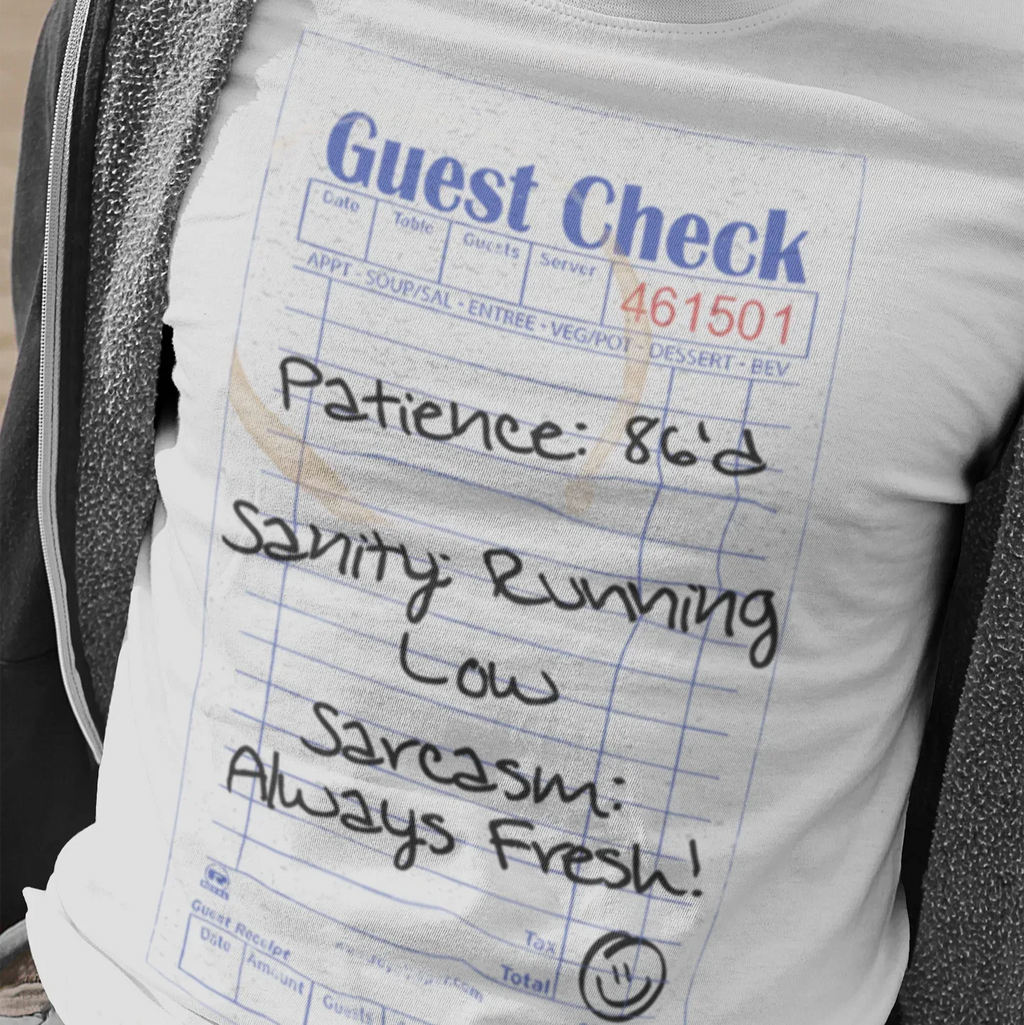 Guest Check
Date Table Guests Server 461501
APPT - SOUP/SAL - ENTREE - VEG/POT - DESSERT - BEV
Patience: 86'd
Sanity: Running
Low
Sarcasm:
Always Fresh!
Tax
Total
Guest Receipt
Date Amount Guests